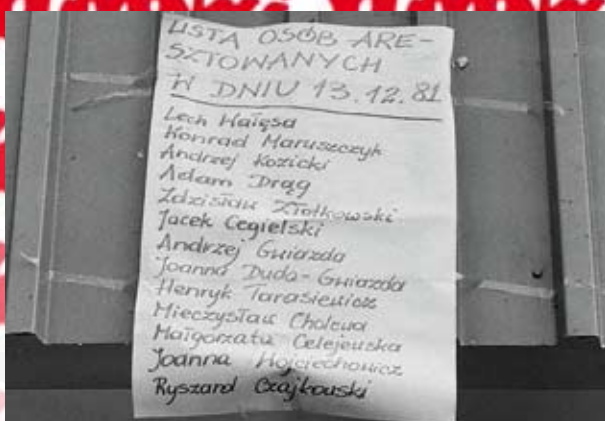 LISTA OSÓB ARE-
SZTOWANYCH
W DNIU 13.12.81
Lech Wałęsa
Konrad Maruszczyk
Andrzej Kozicki
Adam Drąg
Zdzisław Złotkowski
Jacek Cegielski
Andrzej Gwiazda
Joanna Duda-Gwiazda
Henryk Tarasiewicz
Mieczysław Cholewa
Małgorzata Celejewska
Joanna Wojciechowicz
Ryszard Czajkowski